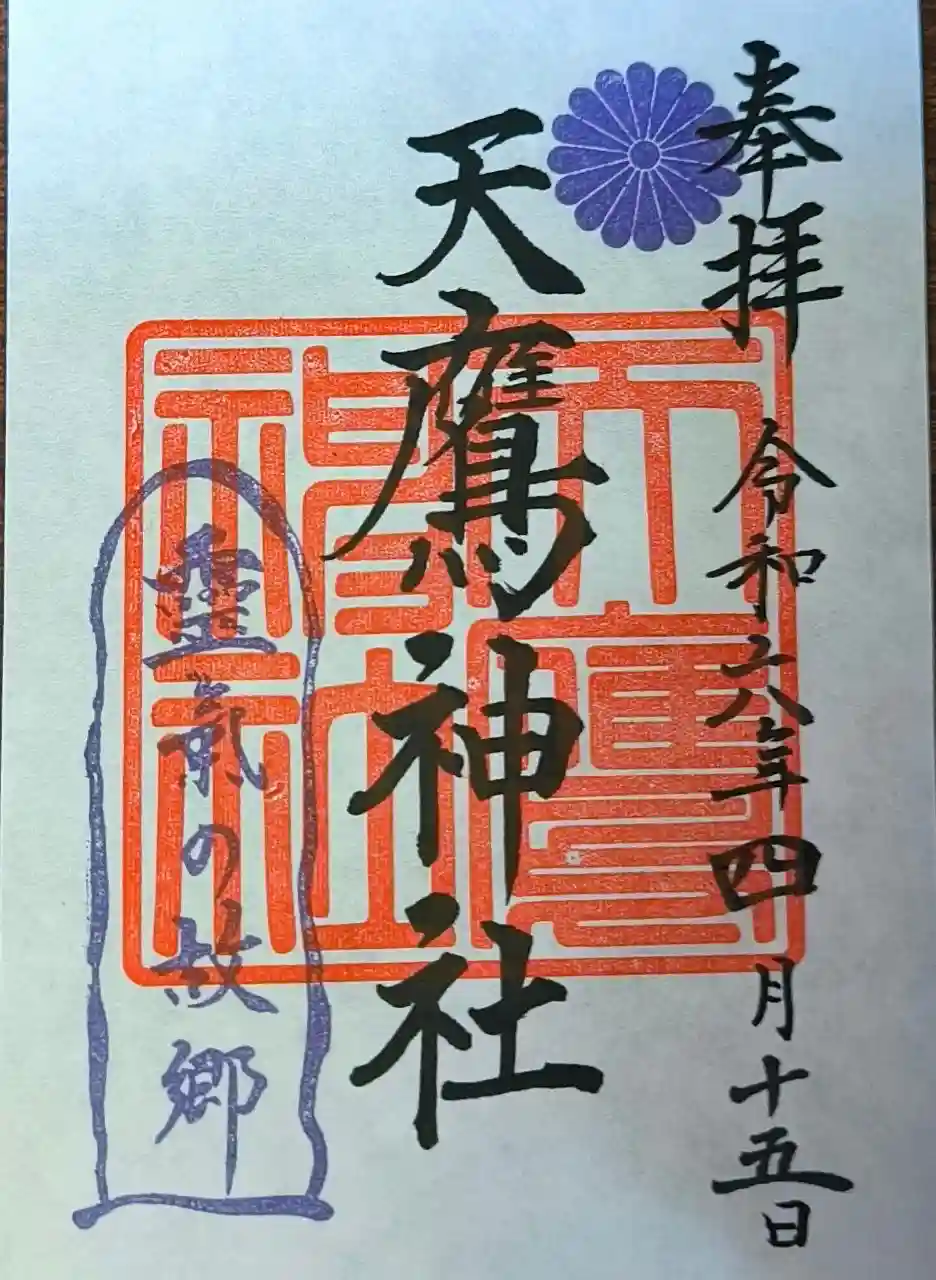 奉拝 令和六年四月十五日
天鷹神社
天鷹神社
霊氣の故郷